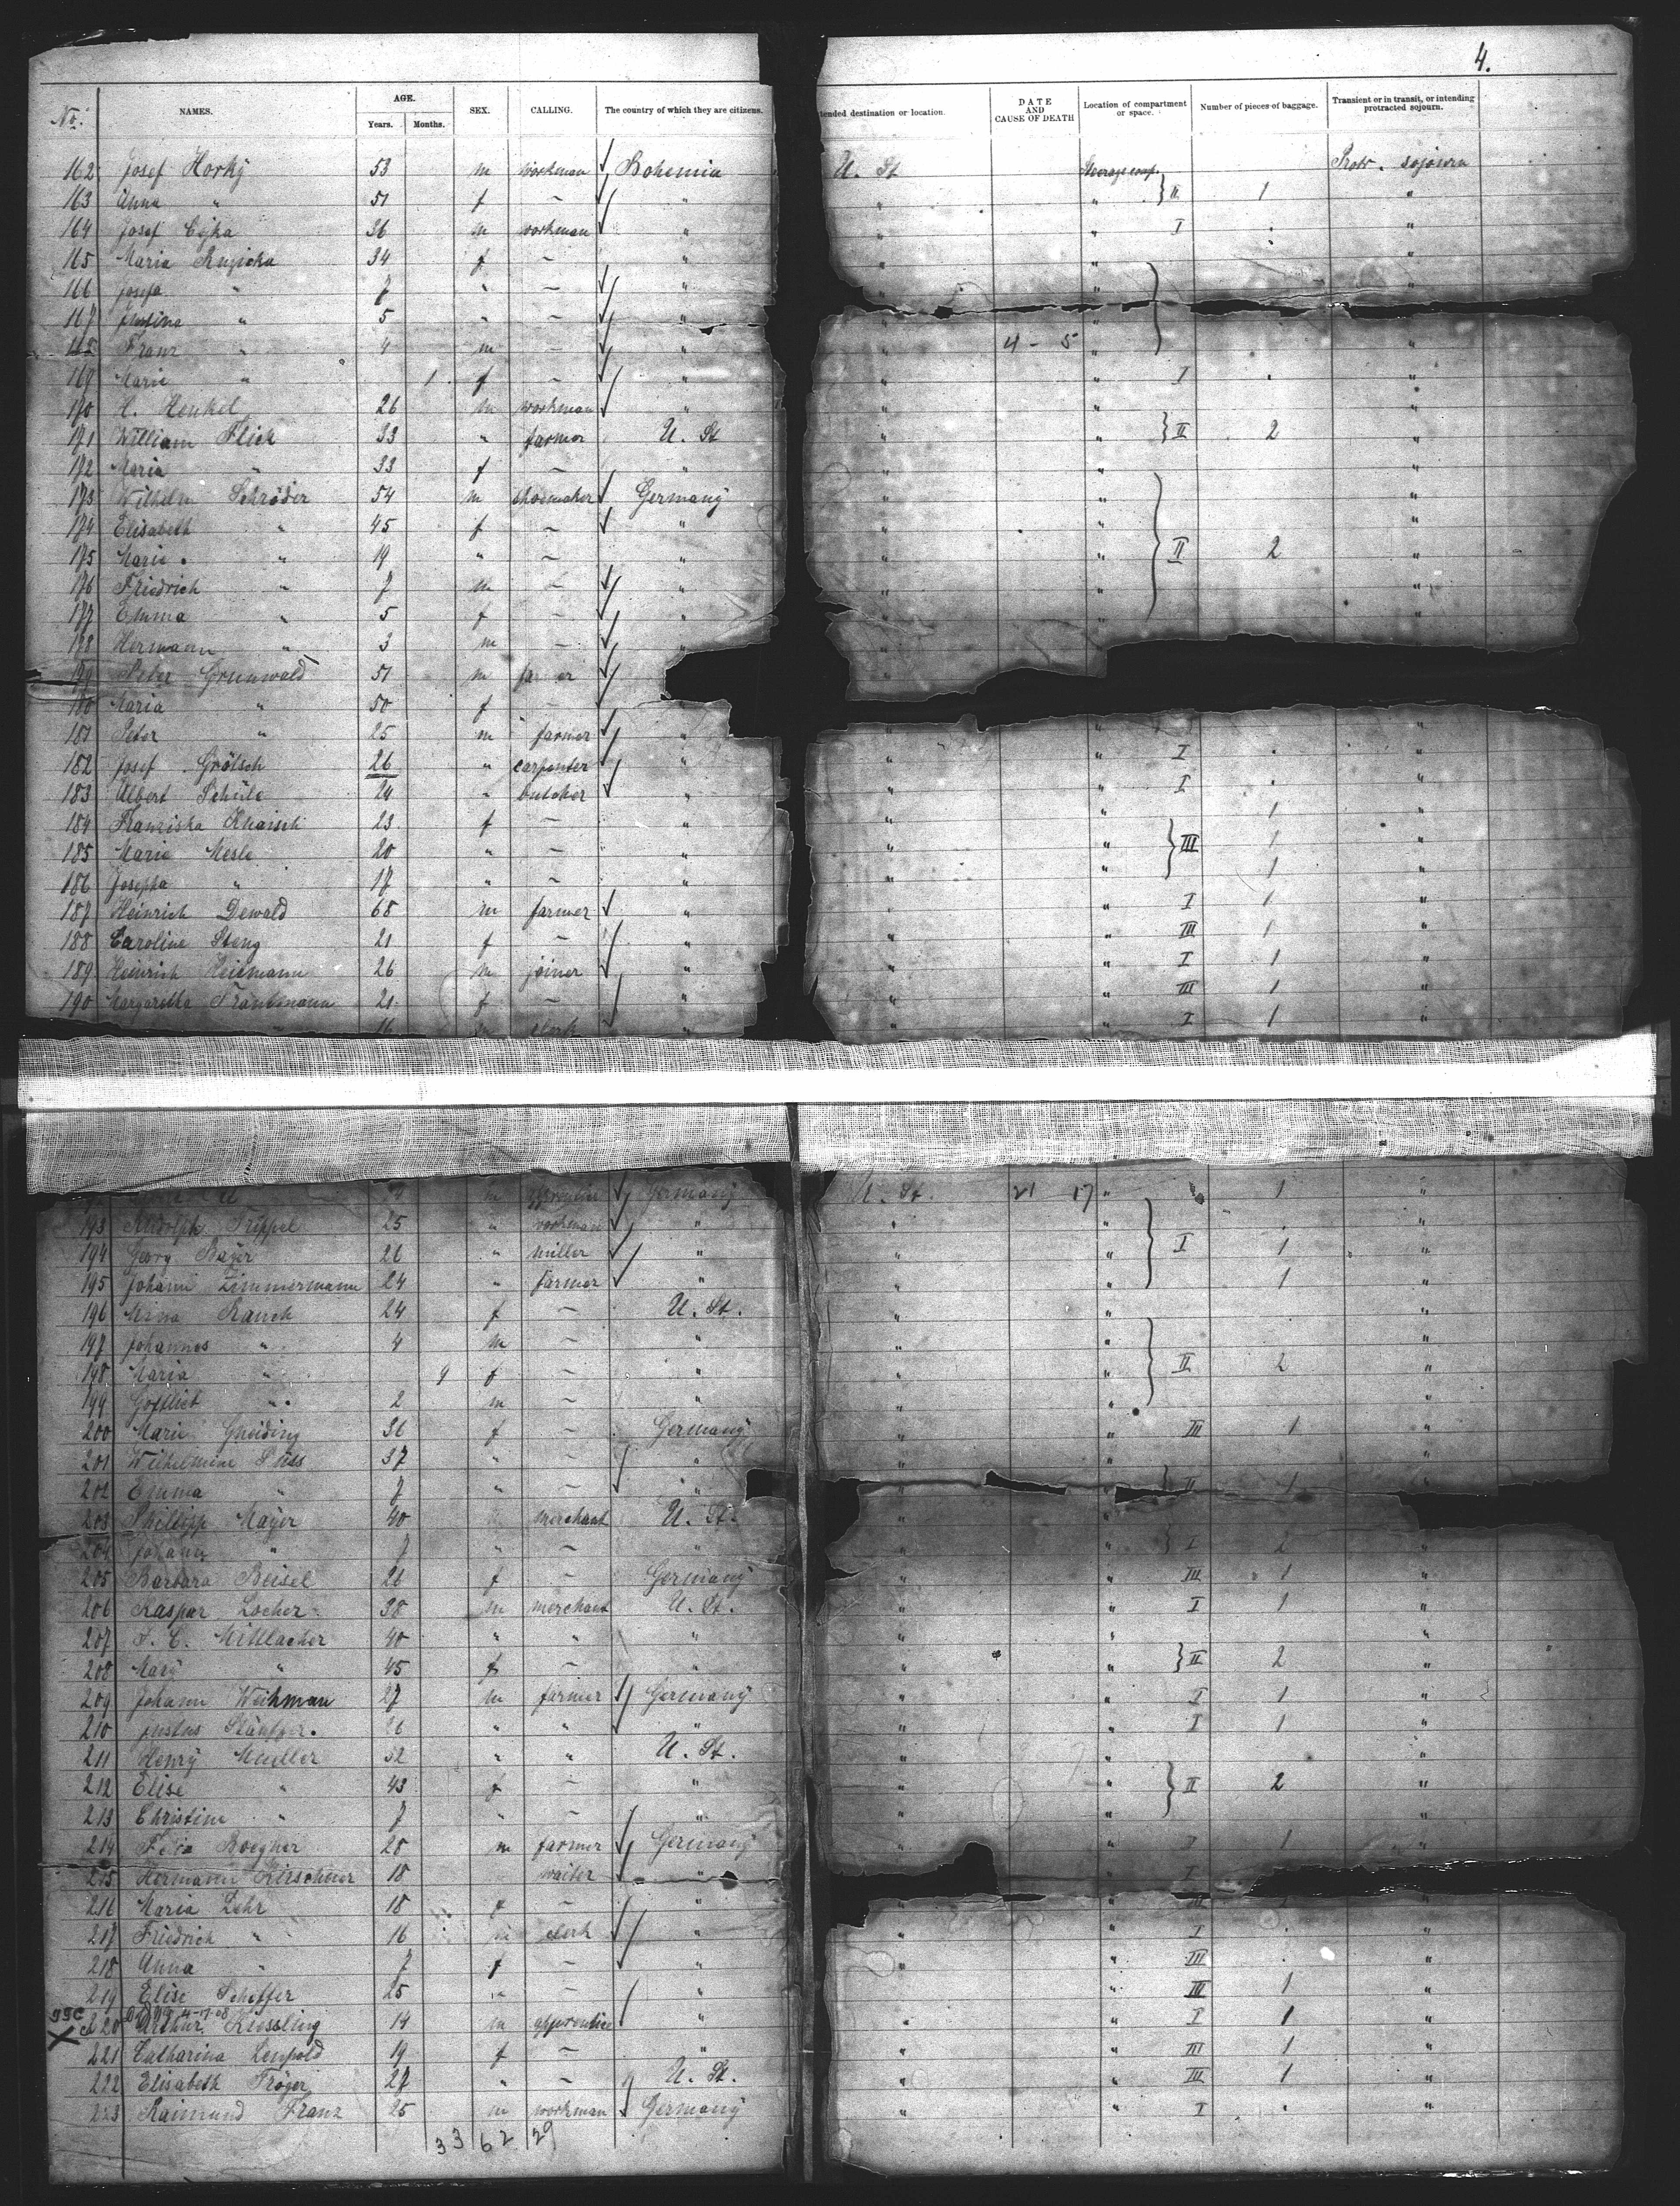 4.
No. NAMES. AGE. Years. Months. SEX. CALLING. The country of which they are citizens. tended destination or location. DATE AND CAUSE OF DEATH Location of compartment or space. Number of pieces of baggage. Transient or in transit, or intending protracted sojourn.
162 Josef Horky 53 m workman Bohemia U. St Steerage comp. Protr. sojourn
163 Anna " 51 f — " " " II 1 "
164 Josef 36 m workman " " " I "
165 Maria Ruzicka 34 f — " " " "
166 Josefa " 7 " — " " " "
167 " 5 " — " " "
168 Franz " 4 m — " " 4 - 5 " "
169 Marie " 1 f — " " " I "
170 H. Henkel 26 m workman " " " "
171 William Flick 33 " farmer U. St " " II 2 "
172 Maria " 33 f — " " " "
173 Wilhelm Schröder 54 m shoemaker Germany " " "
174 Elisabeth " 45 f — " " " "
175 Marie " 19 " — " " " II 2 "
176 Friedrich " 7 m — " " " "
177 Emma " 5 f — " " " "
178 Hermann " 3 m —
179 Peter Grunwald 51 m fa er
180 Maria " 50 f —
181 Peter " 25 m farmer " " " "
182 Josef Grölsch 26 " carpenter " " " I "
183 Albert Schüle 24 " butcher " " " I "
184 Franziska 23 f — " " " 1 "
185 Maria Mesle 20 " — " " " III 1 "
186 Josepha " 17 " — " " " 1 "
187 Heinrich Dewald 68 m farmer " " " I 1 "
188 Caroline Steng 21 f — " " " III 1 "
189 Heinrich Heilmann 26 m joiner " " " I 1 "
190 Margaretha Trautmann 21 f — " " " III 1 "
16 m clerk " " " I 1 "
m apprentice Germany U. St. 21 17 " 1 "
193 Rudolph Trippel 25 " workman " " " "
194 Georg Bayer 26 " miller " " " I 1 "
195 Johann Zimmermann 24 " farmer " " " 1 "
196 Mina Rauch 24 f — U. St. " " "
197 Johannes " 4 m — " " " "
198 Maria " 9 f — " " " II 2 "
199 Gottlieb " 2 m — " " " "
200 Marie Gneiding 36 f — Germany " " III 1 "
201 Wilhelmine Süss 37 " — " " " "
202 Emma " 7 " — " " " II 1 "
203 Philipp Mayer 40 merchant U. St. " " "
204 Johann " 7 " — " " " I 2 "
205 Barbara Beisel 26 f — Germany " " III 1 "
206 Kaspar Locher 38 m merchant U. St. " " I 1 "
207 40 " " " " " "
208 Mary " 45 f — " " " II 2 "
209 Johann Weihman 27 m farmer Germany " " I 1 "
210 Justus 26 " " " " " I 1 "
211 Henry Mueller 32 " " U. St. " " "
212 Elise " 43 f — " " " II 2 "
213 Christine " 7 " — " " " "
214 Boegher 28 m farmer Germany " " I 1 "
215 Hermann Kirschner 18 waiter " I
216 Maria Lehr 18 f — " " " III "
217 Friedrich " 16 m clerk " " " I "
218 Anna " 7 f — " " " III "
219 Elise Scheffer 25 " — " " " III 1 "
99C 4-17-08
X 220 Arthur Kiessling 14 m apprentice " " " I 1 "
221 Catharina Leupold 19 f — " " " III 1 "
222 Elisabeth Tröger 27 " — U. St. " " III 1 "
223 Raimund Franz 25 m workman Germany " " I "
33 62 29